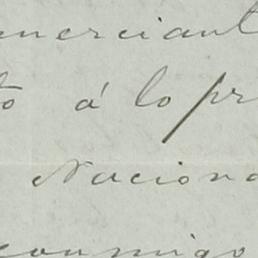 merciant
to á lo pr
Naciona
conmigo